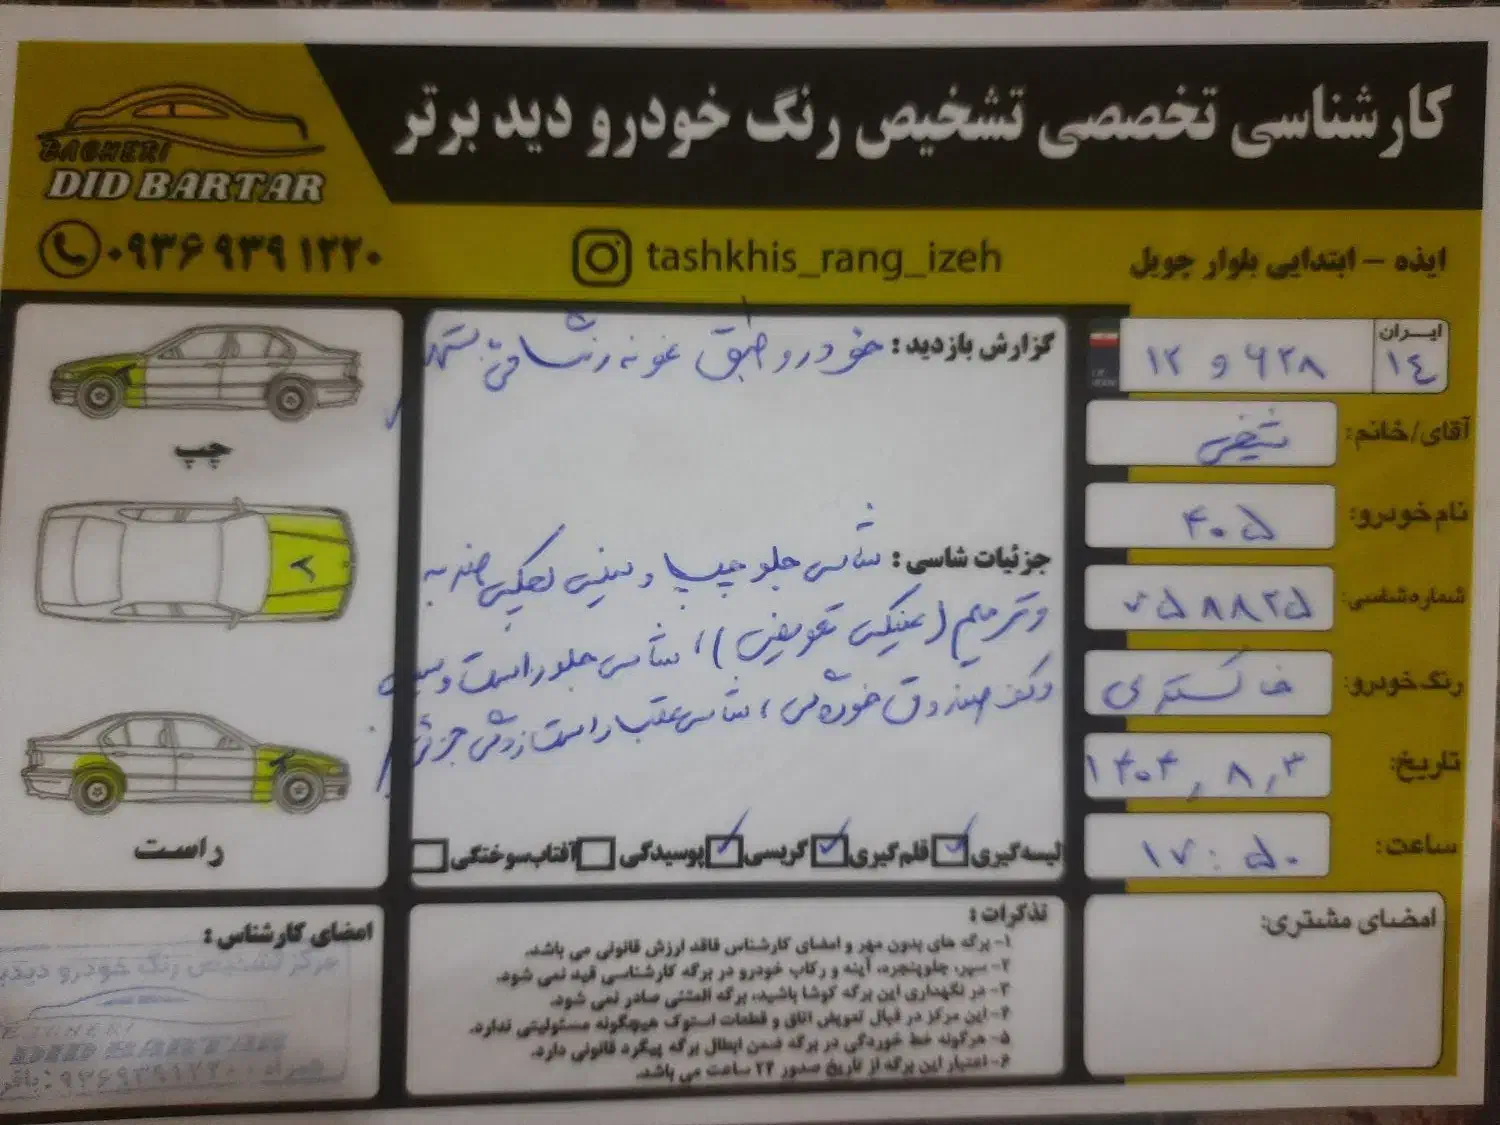 کارشناسی تخصصی تشخیص رنگ خودرو دید برتر
BAGHERI
DID BARTAR
۰۹۳۶ ۹۳۹ ۱۲۲۰
tashkhis_rang_izeh
ایذه - ابتدایی بلوار چویل
ایران
۱٤
۱۲ و ۶۲۸
آقای/خانم:
نام خودرو: ۴۰۵
شماره شاسی: ۷۵۸۸۲۵
رنگ خودرو: خاکستری
تاریخ: ۱۴۰۴,۸,۳
ساعت: ۱۷:۵۰
امضای مشتری:
گزارش بازدید: خودرو طبق نمونه رنگ
جزئیات شاسی: شاسی جلو چپ و سینی ضربه
و ترمیم ( تعویض )، شاسی جلو راست و سینی
و کف صندوق خوردگی، شاسی عقب راست جزئی
لیسه‌گیری قلم‌گیری گریسی پوسیدگی آفتاب‌سوختگی
چپ
۲
راست
تذکرات:
۱- برگه های بدون مهر و امضای کارشناس فاقد ارزش قانونی می باشد.
۲- سپر، جلوپنجره، آینه و رکاب خودرو در برگه کارشناسی قید نمی شود.
۳- در نگهداری این برگه کوشا باشید، برگه المثنی صادر نمی شود.
۴- این مرکز در قبال تعویض اتاق و قطعات استوک هیچگونه مسئولیتی ندارد.
۵- هرگونه خط خوردگی در برگه ضمن ابطال برگه پیگرد قانونی دارد.
۶- اعتبار این برگه از تاریخ صدور ۲۴ ساعت می باشد.
امضای کارشناس:
مرکز تشخیص رنگ خودرو
DID BARTAR
همراه: ۰۹۳۶۹۳۹۱۲۲۰